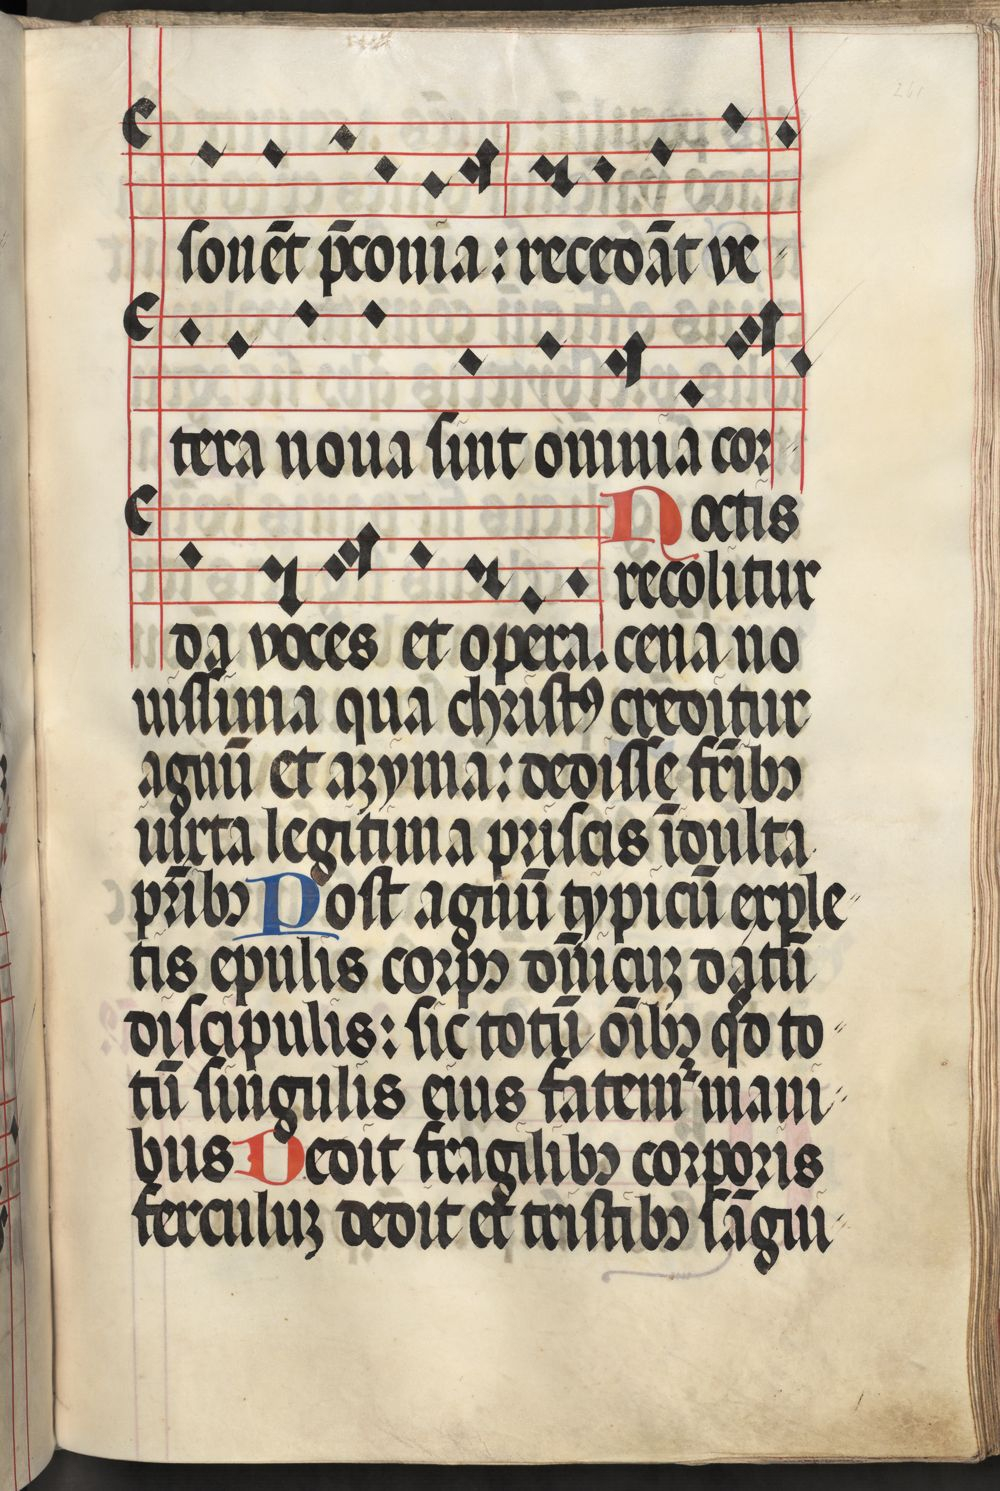 sonēt p̄conia: recedāt ve
tera noua sint omnia cor
da voces et opera.
Noctis
recolitur
cena no
uissima qua christꝰ creditur
agnū et azyma: dedisse fr̄ibꝫ
iuxta legitima priscis īdulta
pr̄ibꝫ Post agnū typicū exple
tis epulis corpꝫ dn̄icuꝫ datū
discipulis: sic totū oībꝫ qd to
tū singulis eius fatemᷣ mani
bus Dedit fragilibꝫ corporis
ferculuꝫ dedit et tristibꝫ sāgui